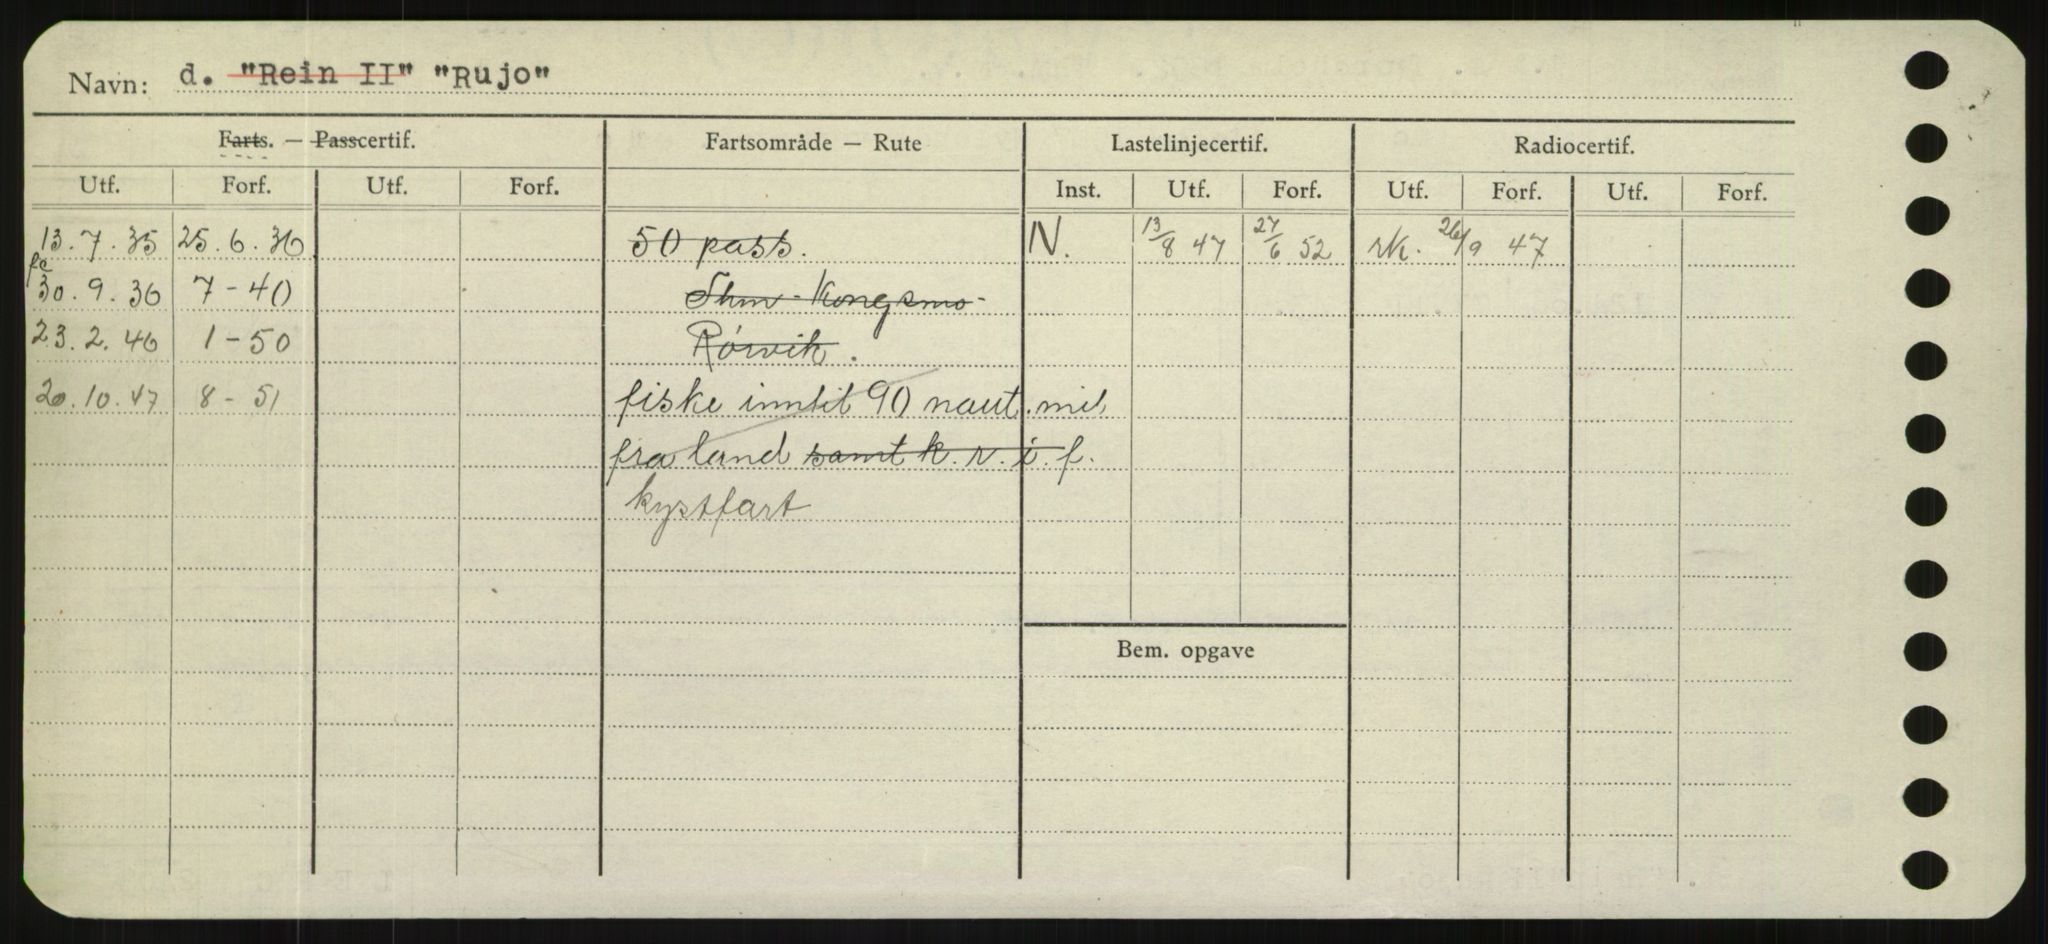 Navn: d. "Rein II" "Rujo"
Farts. — Passcertif. Fartsområde — Rute Lastelinjecertif. Radiocertif.
Utf. Forf. Utf. Forf. Inst. Utf. Forf. Utf. Forf. Utf. Forf.
13.7.35 25.6.36 50 pass. N. 13/8 47 27/6 52 rk. 26/9 47
fc
30.9.36 7-40 Thm-Kongsmo-
23.2.46 1-50 Rörvik.
20.10.47 8-51 fiske inntil 90 naut. mil
fra land samt k. r. i. f.
kystfart
Bem. opgave